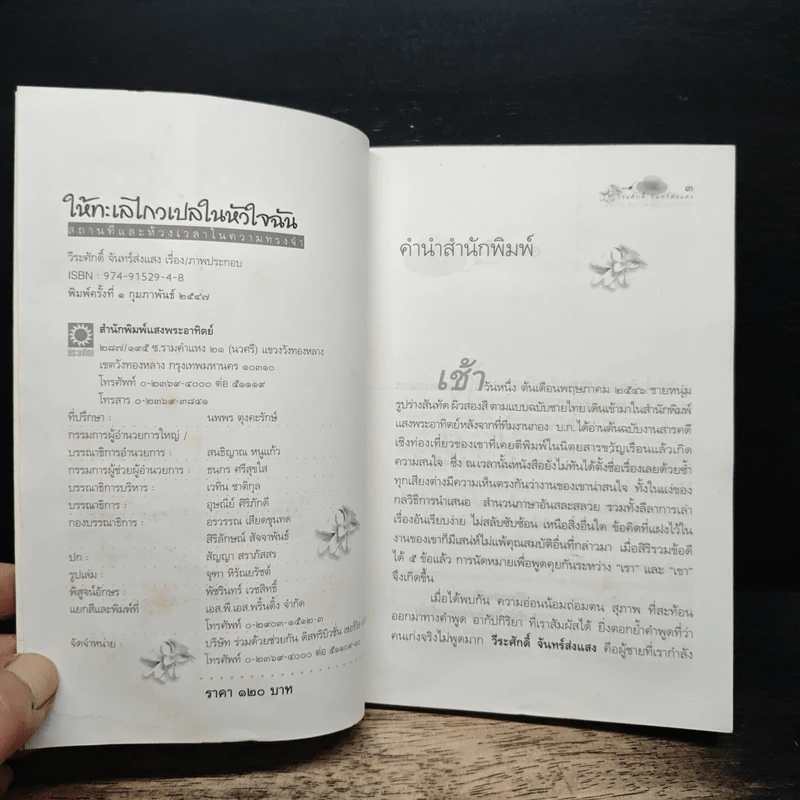 ให้ทะเลไกวเปลในหัวใจฉัน
สถานที่และห้วงเวลาในความทรงจำ
วีระศักดิ์ จันทร์ส่งแสง เรื่อง/ภาพประกอบ
ISBN : 974-91529-4-8
พิมพ์ครั้งที่ ๑ กุมภาพันธ์ ๒๕๔๗
สำนักพิมพ์แสงพระอาทิตย์
๒๘๗/๑๙๕ ซ.รามคำแหง ๒๑ (นวศรี) แขวงวังทองหลาง
เขตวังทองหลาง กรุงเทพมหานคร ๑๐๓๑๐
โทรศัพท์ ๐-๒๓๖๙-๔๐๐๐ ต่อ ๕๑๑๑๙
โทรสาร ๐-๒๓๖๙-๓๘๕๑
ที่ปรึกษา : นพพร ตุงคะรักษ์
กรรมการผู้อำนวยการใหญ่ /
บรรณาธิการอำนวยการ : สนธิญาณ หนูแก้ว
กรรมการผู้ช่วยผู้อำนวยการ : ธนกร ศรีสุขใส
บรรณาธิการบริหาร : เวทิน ชาติกุล
บรรณาธิการ : อุษณีย์ ศิริภักดี
กองบรรณาธิการ : อรวรรณ เสียดขุนทด
สิริลักษณ์ สัจจาพันธ์
ปก : สัญญา สราภัสสร
รูปเล่ม : จุฑา หิรัณยรัชต์
พิสูจน์อักษร : พัชรินทร์ เวชสิทธิ์
แยกสีและพิมพ์ที่ เอส.พี.เอส.พริ้นติ้ง จำกัด
โทรศัพท์ ๐-๒๙๐๓-๑๕๑๒-๓
จัดจำหน่าย : บริษัท ร่วมด้วยช่วยกัน ดิสทริบิวชั่น เซอร์วิส
โทรศัพท์ ๐-๒๓๖๙-๔๐๐๐ ต่อ
ราคา ๑๒๐ บาท
วีระศักดิ์ จันทร์ส่งแสง ๓
คำนำสำนักพิมพ์
เช้าวันหนึ่ง ต้นเดือนพฤษภาคม ๒๕๔๖ ชายหนุ่ม
รูปร่างสันทัด ผิวสองสี ตามแบบฉบับชายไทย เดินเข้ามาในสำนักพิมพ์
แสงพระอาทิตย์หลังจากที่ทีมงานกอง บ.ก.ได้อ่านต้นฉบับงานสารคดี
เชิงท่องเที่ยวของเขาที่เคยตีพิมพ์ในนิตยสารขวัญเรือนแล้วเกิด
ความสนใจ ซึ่ง ณ เวลานั้นหนังสือยังไม่ทันได้ตั้งชื่อเรื่องเลยด้วยซ้ำ
ทุกเสียงต่างมีความเห็นตรงกันว่างานของเขาน่าสนใจ ทั้งในแง่ของ
กลวิธีการนำเสนอ สำนวนภาษาอันสละสลวย รวมทั้งลีลาการเล่า
เรื่องอันเรียบง่าย ไม่สลับซับซ้อน เหนือสิ่งอื่นใด ข้อคิดที่แฝงไว้ใน
งานของเขาก็มีเสน่ห์ไม่แพ้คุณสมบัติอื่นที่กล่าวมา เมื่อสิริรวมข้อดี
ได้ ๕ ข้อแล้ว การนัดหมายเพื่อพูดคุยกันระหว่าง "เรา" และ "เขา"
จึงเกิดขึ้น
เมื่อได้พบกัน ความอ่อนน้อมถ่อมตน สุภาพ ที่สะท้อน
ออกมาทางคำพูด อากัปกิริยา ที่เราสัมผัสได้ ยิ่งตอกย้ำคำพูดที่ว่า
คนเก่งจริงไม่พูดมาก วีระศักดิ์ จันทร์ส่งแสง คือผู้ชายที่เรากำลัง